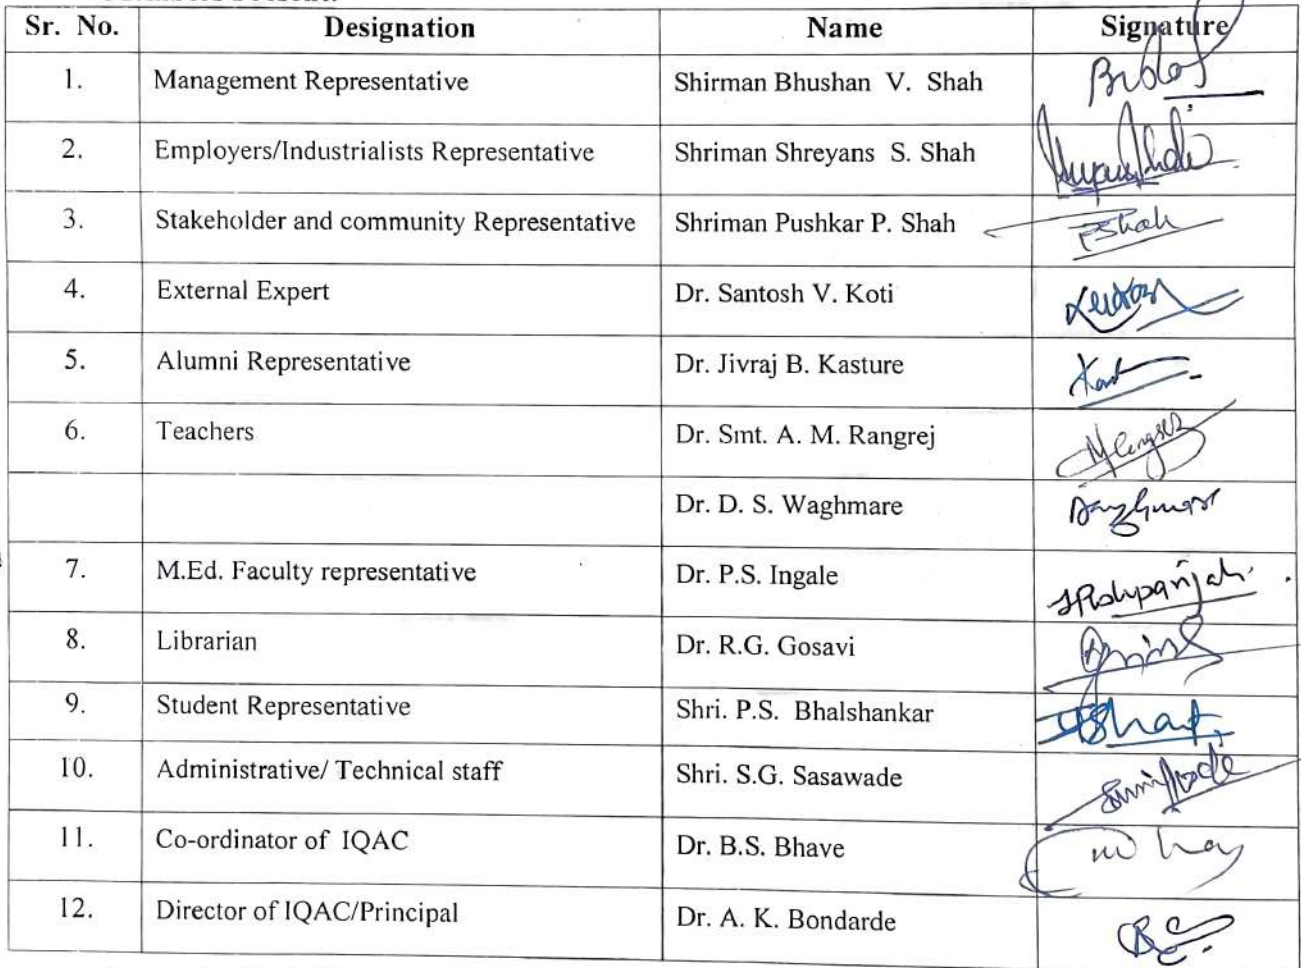 Sr. No. Designation Name Signature
1. Management Representative Shirman Bhushan V. Shah
2. Employers/Industrialists Representative Shriman Shreyans S. Shah
3. Stakeholder and community Representative Shriman Pushkar P. Shah PShah
4. External Expert Dr. Santosh V. Koti
5. Alumni Representative Dr. Jivraj B. Kasture
6. Teachers Dr. Smt. A. M. Rangrej
Dr. D. S. Waghmare
7. M.Ed. Faculty representative Dr. P.S. Ingale
8. Librarian Dr. R.G. Gosavi
9. Student Representative Shri. P.S. Bhalshankar
10. Administrative/ Technical staff Shri. S.G. Sasawade
11. Co-ordinator of IQAC Dr. B.S. Bhave
12. Director of IQAC/Principal Dr. A. K. Bondarde